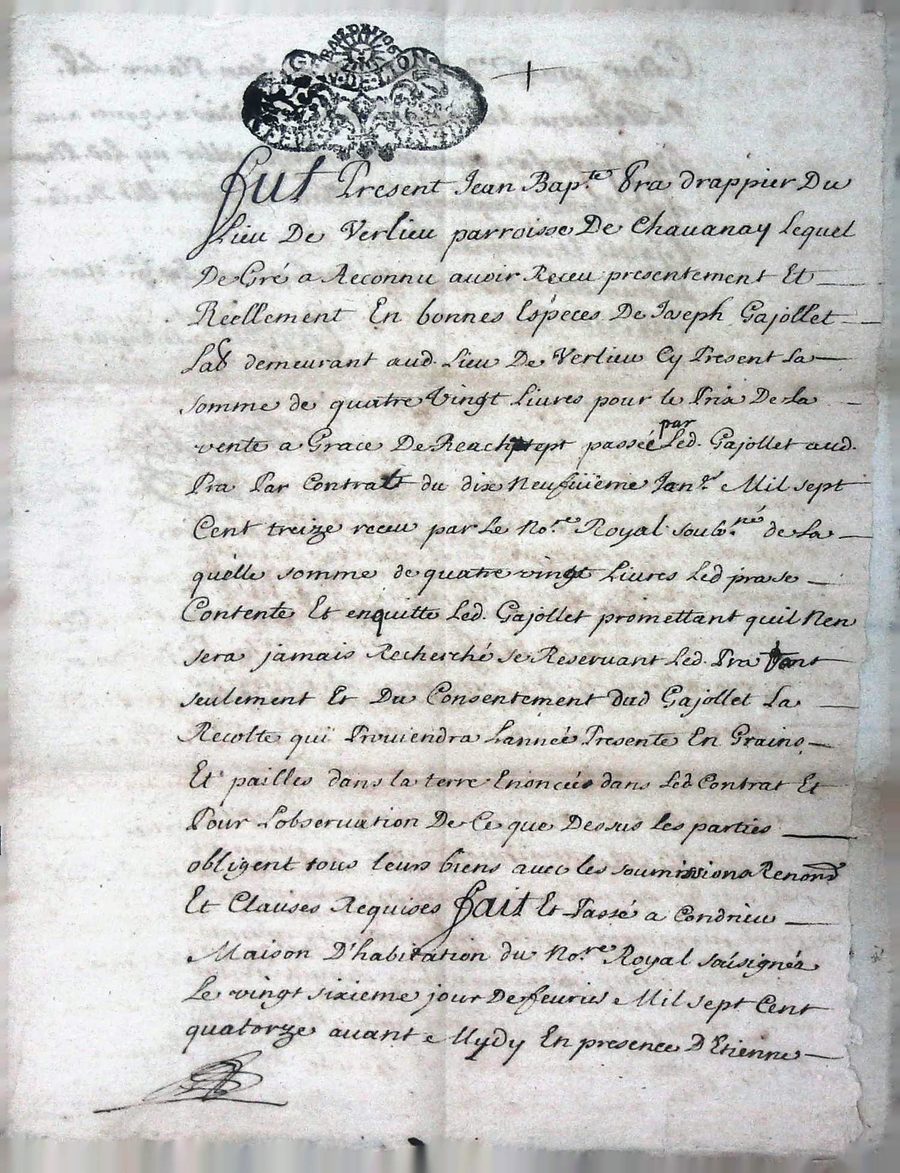 DE LION
Fut Present Jean Bap.te Pra drappier Du
Lieu De Verlieu parroisse De Chauanay Lequel
De Gré a Reconnu auoir Receu presentement Et
Réellement En bonnes Espéces De Joseph Gajollet
Lab demeurant aud. Lieu De Verlieu Cy Present La
somme de quatre Vingt Liures pour le Prix De La
vente a Grace De Reachptept passéé par Led. Gajollet aud.
Pra Par Contrat du dix Neufuiême Jan.r Mil sept
Cent treize receu par Le No.re Royal soub.né de La
quélle somme de quatre vingt Liures Led pra se
Contente Et enquitte Led. Gajollet promettant quil Nen
sera jamais Recherché se Reservant Led. Pra tant
seulement Et Du Consentement dud Gajollet La
Recolte qui Prouiendra Lannéé Presente En Grains
Et pailles dans la terre Enoncéé dans Led Contrat Et
Pour Lobseruation De Ce que Dessus Les parties
obligent tous leurs biens auec les soumissions Renond
Et Clauses Requises fait Et Passé a Condrieu
Maison D'habitation du No.re Royal soúsigné
Le vingt sixieme jour De feurier Mil sept Cent
quatorze auant Mydy En presence D'Etienne